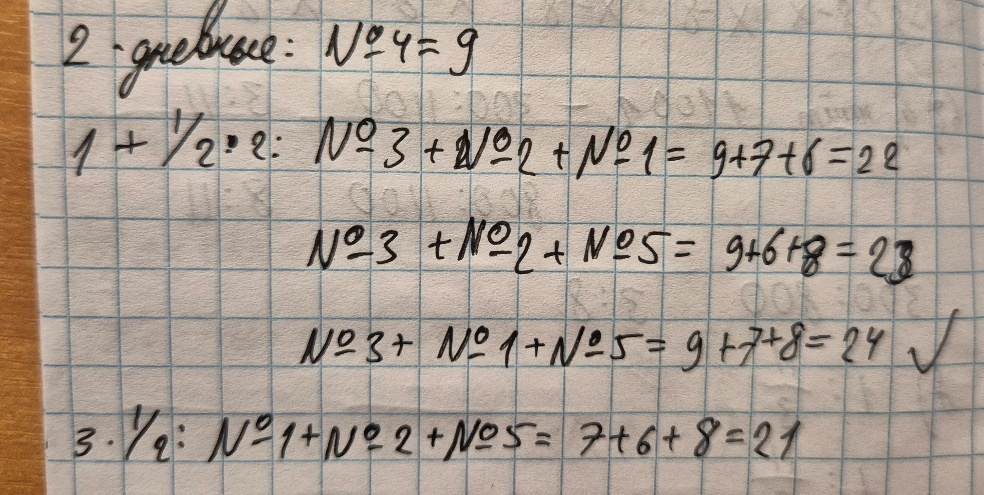 2-дневные: №4=9
1 + 1/2·2: №3 + №2 + №1 = 9+7+6=22
№3 + №2 + №5 = 9+6+8 = 23
№3 + №1 + №5 = 9+7+8 = 24 ✓
3·1/2: №1+№2+№5= 7+6+8=21